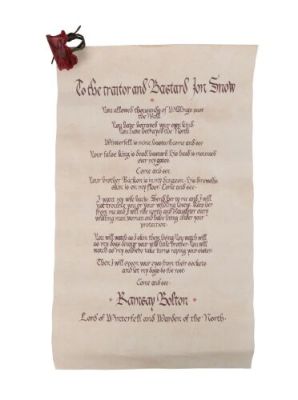 To the traitor and Bastard Jon Snow
You allowed thousands of Wildlings past
the Wall
You have betrayed your own kind
You have betrayed the North
Winterfell is mine bastard come and see
Your false king is dead bastard His head is mounted
over my gates
Come and see
Your brother Rickon is in my dungeon - His direwolfs
skin is on my floor Come and see -
I want my wife back Send her to me and I will
not trouble you or your wildling lovers Keep her
from me and I will ride north and slaughter every
wildling man woman and babe living under your
protection -
You will watch as I skin them living You watch will
as my dogs devour your wild little brother You will
watch as my soldiers take turns raping your sister
Then I will spoon your eyes from their sockets
and let my dogs do the rest
Come and see
Ramsay Bolton
Lord of Winterfell and Warden of the North -